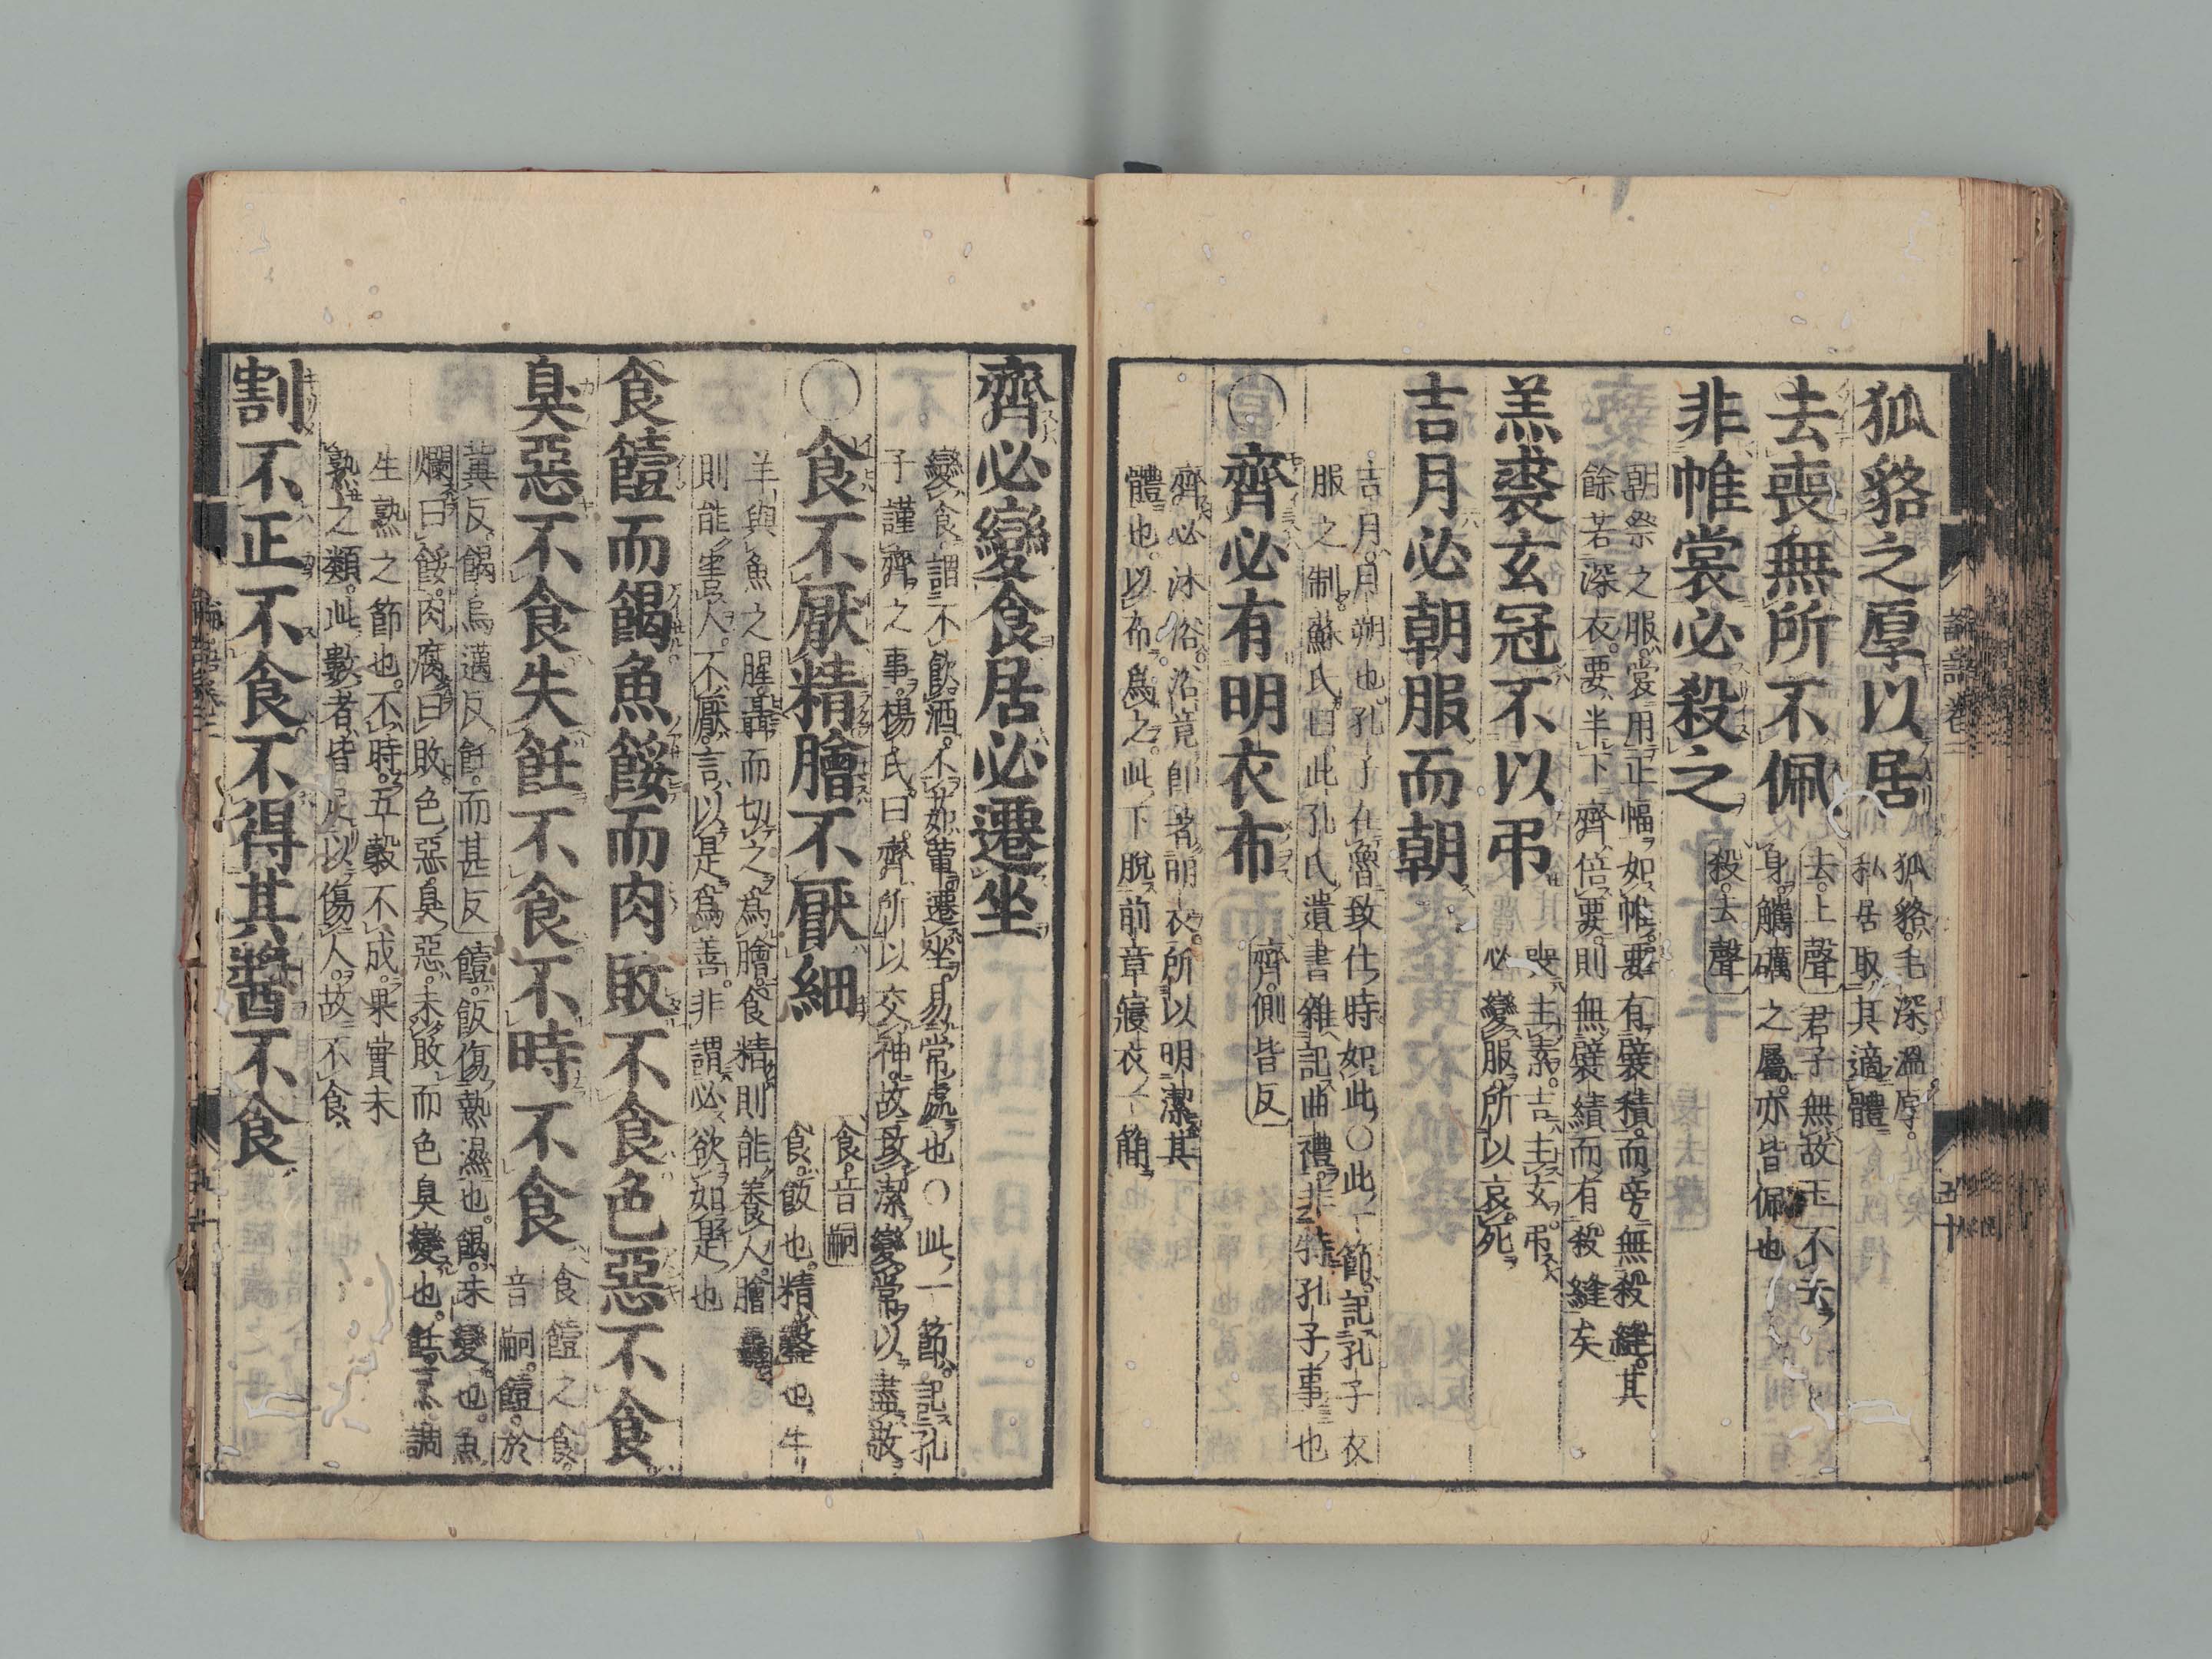 狐貉之厚以居
狐貉。毛深溫厚。
私居取其適體
去喪無所不佩
去。上聲
君子無故玉不去
身。觿礪之屬。亦皆佩也
非帷裳必殺之
殺。去聲
朝祭之服。裳用正幅如帷。要有襞積。而旁無殺縫。其
餘若深衣。要半下。齊倍要。則無襞績而有殺縫矣
羔裘玄冠不以弔
喪主素。吉主玄。弔
必變服。所以哀死
吉月必朝服而朝
吉月。月朔也。孔子在魯致仕時如此○此一節。記孔子衣
服之制。蘇氏曰。此孔氏遺書雜記曲禮。非特孔子事也
○齊必有明衣布
齊。側皆反
齊必沐浴。浴竟。卽著明衣。所以明潔其
體也。以布爲之。此下脫前章寢衣一簡
論語卷二
五十
齊必變食居必遷坐
變食。謂不飮酒。不茹葷。遷坐。易常處也○此一節。記孔
子謹齊之事。楊氏曰。齊所以交神。故致潔變常以盡敬
○食不厭精膾不厭細
食音嗣
食。飯也。精。鑿也。牛
羊與魚之腥。聶而切之爲膾。食精則能養人。膾麤
則能害人。不厭。言以是爲善。非謂必欲如是也
食饐而餲魚餒而肉敗不食色惡不食
臭惡不食失飪不食不時不食
食饐之食。
音嗣。饐。於
冀反。餲烏邁反。飪。而甚反
饐。飯傷熱濕也。餲。未變也。魚
爛曰餒。肉腐曰敗。色惡。臭惡。未敗而色臭變也。飪。烹調
生熟之節也。不時。五穀不成。果實未
熟之類。此數者。皆足以傷人。故不食
割不正不食不得其醬不食